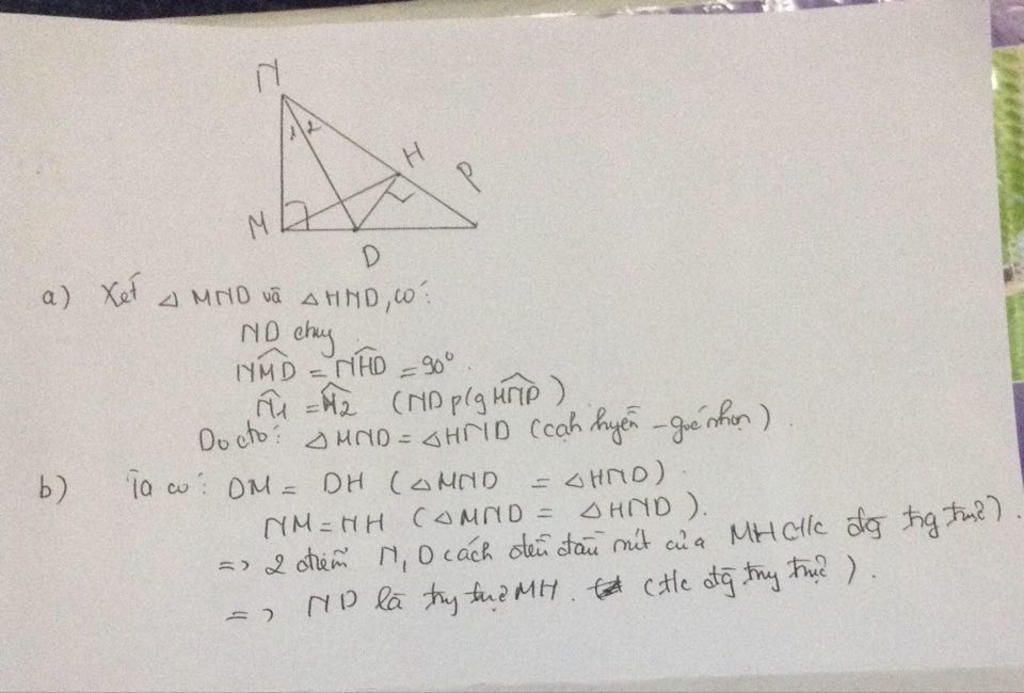 N
1 2
H
P
M
D
a) Xét △MND và △HND, có:
ND chug
NMD = NHD = 90°.
N1 = N2 (ND p/g MNP)
Do đó: △MND = △HND (cạh huyền - góc nhọn).
b) Ta có: DM = DH (△MND = △HND).
NM = NH (△MND = △HND).
=> 2 điểm N, D cách đều đầu mút của MH (t/c đg trg trực).
=> ND là trg trực MH. (t/c đg trg trực).